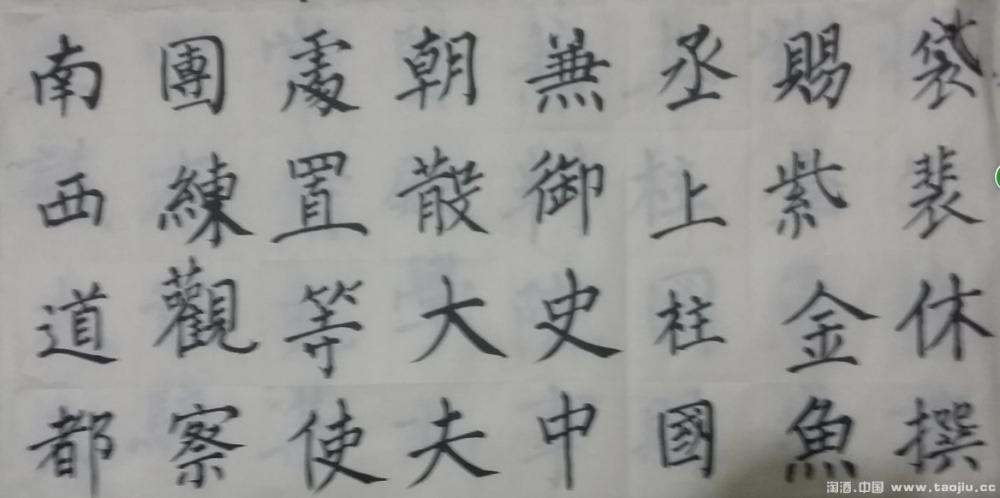 南西道都
團練觀察
處置等使
朝散大夫
兼御史中
丞上柱國
賜紫金魚
袋裴休撰
淘酒.中国 www.taojiu.cc